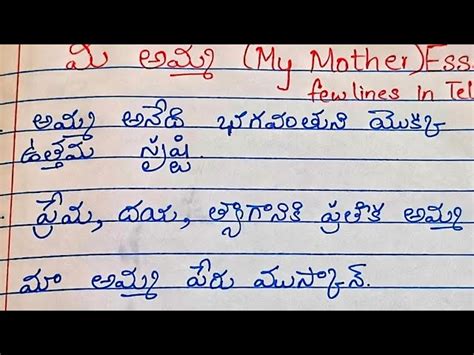 మీ అమ్మ (My Mother) Ess
few lines in Tel
అమ్మ అనేది భగవంతుని యొక్క
ఉత్తమ సృష్టి.
ప్రేమ, దయ, త్యాగానికి ప్రతీక అమ్మ
మా అమ్మ పేరు ముస్కాన్.